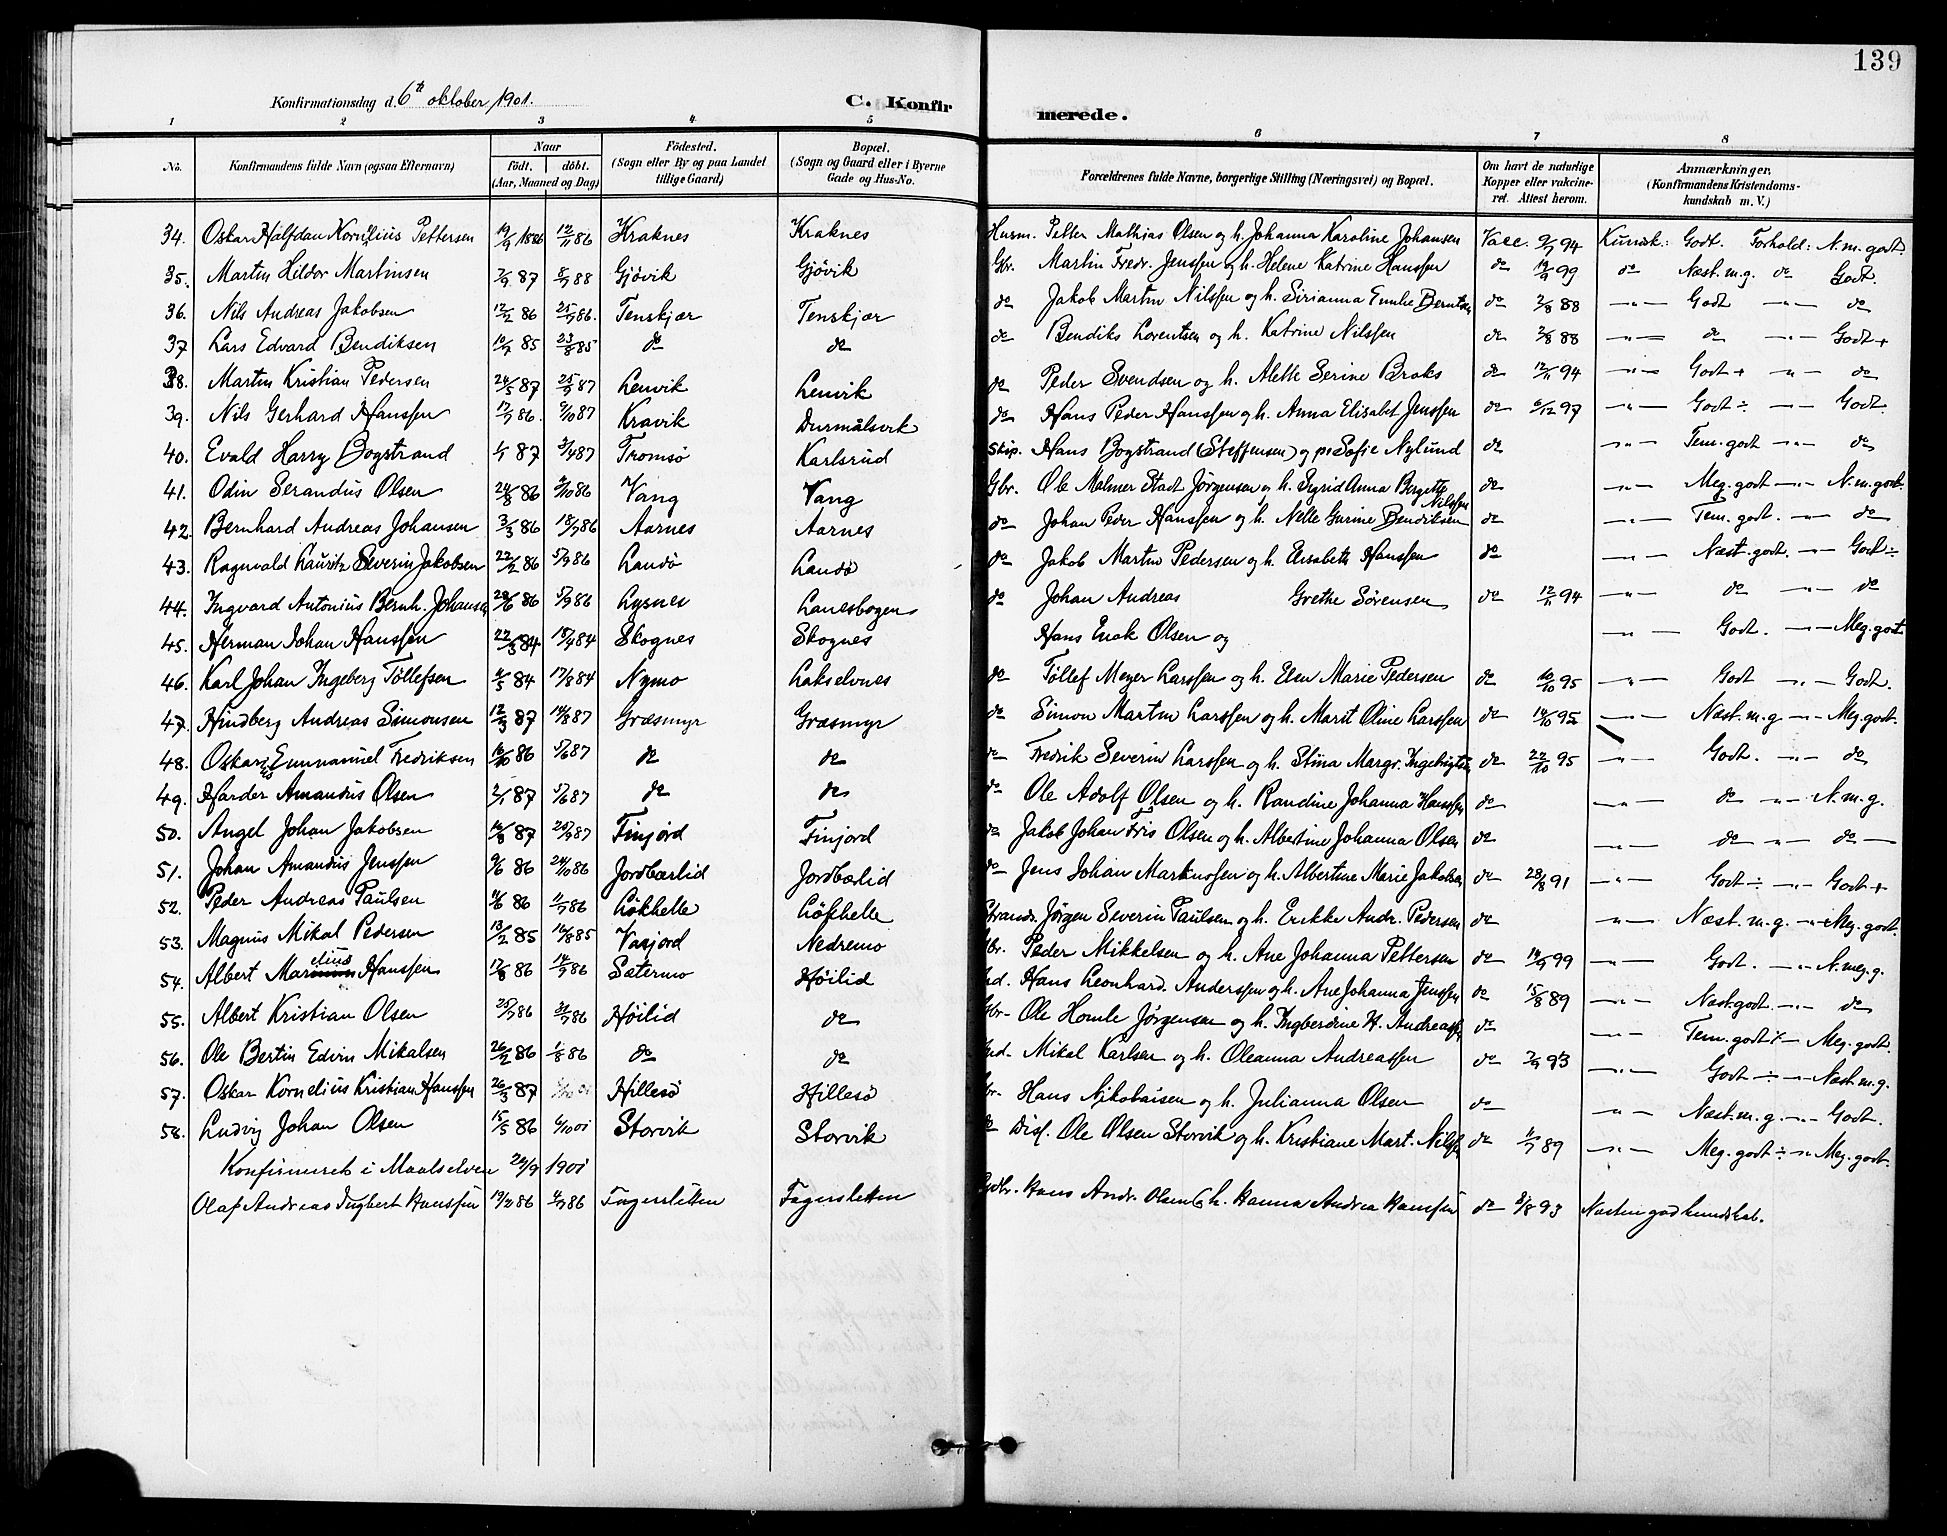 139
Konfirmationsdag d. 6te oktober 1901.
C. Konfirmerede.
1 2 3 4 5 6 7 8
No. Konfirmandens fulde Navn (ogsaa Efternavn) Naar født. døbt. (Aar, Maaned og Dag) Födested. (Sogn eller By og paa Landet tillige Gaard) Bopæl. (Sogn og Gaard eller i Byerne Gade og Hus-No. Forældrenes fulde Navne, borgerlige Stilling (Næringsvei) og Bopæl. Om havt de naturlige Kopper eller vakcineret. Attest herom. Anmærkninger. (Konfirmandens Kristendomskundskab m. V.)
34. Oskar Halfdan Kornelius Pettersen 19/9 1886 12/11 86 Kraknes Kraknes Husm. Petter Mathias Olsen og h. Johanna Karoline Johansen Vacc. 9/7 94 Kundsk.: Godt. Forhold: N. m. godt.
35. Martin Hildor Martinsen 7/9 87 8/7 88 Gjövik Gjövik Gbr. Martin Fredr. Jenssen og h. Helene Katrine Hanssen do 14/9 99 do Næst. m. g. do Godt.
36. Nils Andreas Jakobsen 12/2 86 25/7 86. Tenskjær Tenskjær do Jakob Martin Nilssen og h. Sirianna Emilie Berntsen do 2/8 88 -"- Godt -"- do
37. Lars Edvard Bendiksen 10/7 85 23/8 85 do do do Bendiks Lorentsen og h. Katrine Nilssen do 2/8 88 -"- do -"- Godt +
38. Martin Kristian Pedersen 24/5 87 25/9 87 Lenvik Lenvik do Peder Svendsen og h. Alette Serine Broks do 12/11 94 -"- Godt + -"- do
39. Nils Gerhard Hanssen 17/7 86. 9/10 87 Kravik Durmålsvik do Hans Peder Hanssen og h. Anna Elisabet Jenssen do 6/12 97 -"- Godt ÷ -"- Godt.
40. Evald Harry Bogstrand 1/1 87 3/4 87 Tromsö Karlsrud Skip. Hans Bogstrand (Steffensen) og Sofie Nylund do -"- Tem. godt -"- do
41. Odin Serandus Olsen 24/8 86 3/10 86 Vang Vang Gbr. Ole Melmer Stadt Jörgensen og h. Sigrid Anna Bergette Nilssen do -"- Meg. godt -"- N. m. godt.
42. Bernhard Andreas Johansen 3/3 86 18/7 86 Aarnes Aarnes do Johan Peder Hanssen og h. Nelle Gurine Bendiksen do -"- Tem. godt. -"- do
43. Ragnvald Lauritz Severin Jakobsen 22/2 86 5/9 86 Landö Landö do Jakob Martin Pedersen og h. Elisabeth Hanssen do -"- Næst. godt. -"- Godt ÷
44. Ingvard Antonius Bernh. Johansen 28/6 86 5/9 86 Lysnes Lanesbogen do Johan Andreas Grethe Sörensen do 12/11 94 -"- do -"- do
45. Herman Johan Hanssen 22/3 84 18/4 84 Skognes Skognes Hans Enok Olsen og -"- Godt. -"- Meg. godt
46. Karl Johan Ingeberg Töllefsen 4/5 84 17/8 84 Nymo Lakselvnes do Töllef Meyer Larssen og h. Elen Marie Pedersen do 10/10 95 -"- Godt -"- Godt.
47. Hindberg Andreas Simonsen 12/3 87 14/8 87 Græsmyr Græsmyr do Simon Martin Larssen og h. Marit Oline Larssen do 14/10 95 -"- Næst. m. g -"- Meg. godt.
48. Oskar Emmanuel Fredriksen 16/10 86 5/6 87 do do do Fredrik Severin Larssen og h. Stina Margr. Ingebrigtsen do 22/10 95 -"- Godt. -"- do
49. Harder Amandus Olsen 2/1 87 5/6 87 do do do Ole Adolf Olsen og h. Randine Johanna Hanssen do -"- do -"- N. m. g.
50. Angel Johan Jakobsen 87 25/9 87 Finjord Finjord do Jakob Johan Fris Olsen og h. Albertine Johanna Olsen do -"- do -"- do
51. Johan Amandus Jenssen 9/6 86 24/10 86 Jordbærlid Jordbærlid do Jens Johan Markussen og h. Albertine Marie Jakobsen do 28/8 91 -"- Godt ÷ -"- Godt +
52. Peder Andreas Paulsen 11/6 86 11/7 86 Lökhelle Lökhelle Strands. Jörgen Severin Paulsen og h. Erikke Andr. Pedersen do -"- Næst. m. g. -"- Meg. godt.
53. Magnus Mikal Pedersen 13/2 85 16/8 85 Vasjord Nedremo Gbr. Peder Mikkelsen og h. Ane Johanna Pettersen do 14/9 99 -"- Godt. -"- N. meg. g.
54. Albert Marelius Hanssen 17/8 86 14/9 86 Sætermo Höilid Ind. Hans Leonhard Anderssen og h. Ane Johanna Jenssen do 15/8 89 -"- Næst. godt. -"- do
55. Albert Kristian Olsen 25/7 86 86 Höilid do Gbr. Ole Homle Jörgensen og h. Ingberdine H. Andreassen do -"- Tem. godt -"- Meg. godt.
56. Ole Bertin Edvin Mikalsen 26/2 86 1/8 86 do do Ind. Mikal Karlsen og h. Oleanna Andreassen do 7/9 93 -"- Godt ÷ -"- Næst m. g.
57. Oskar Kornelius Kristian Hanssen 26/3 87 Hillesö Hillesö Gbr. Hans Nikolaisen og h. Julianna Olsen do -"- Næst. m. g. -"- Godt.
58. Ludvig Johan Olsen 15/5 86 6/10 01 Storvik Storvik do Diss. Ole Olsen Storvik og h. Kristiane Mart. Nilssen do 11/7 89 -"- Meg. godt ÷ -"- Meg. godt.
Konfirmeret i Maalselven 29/9 1901
Olaf Andreas Ingbert Hanssen 19/2 86 4/7 86 Fagersletten Fagersletten Gdbr. Hans Andr. Olsen & h. Hanna Andrea Hanssen do 8/8 93 Næsten god kundskab.